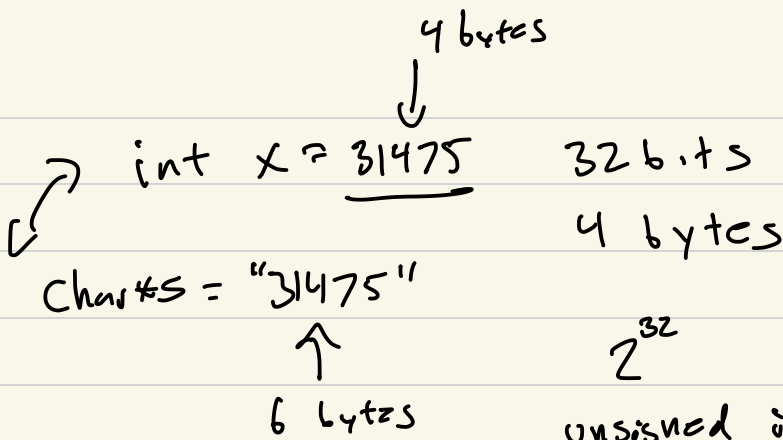 4 bytes
int x = 31475 32 bits
4 bytes
char*s = "31475"
2^32
6 bytes
unsigned